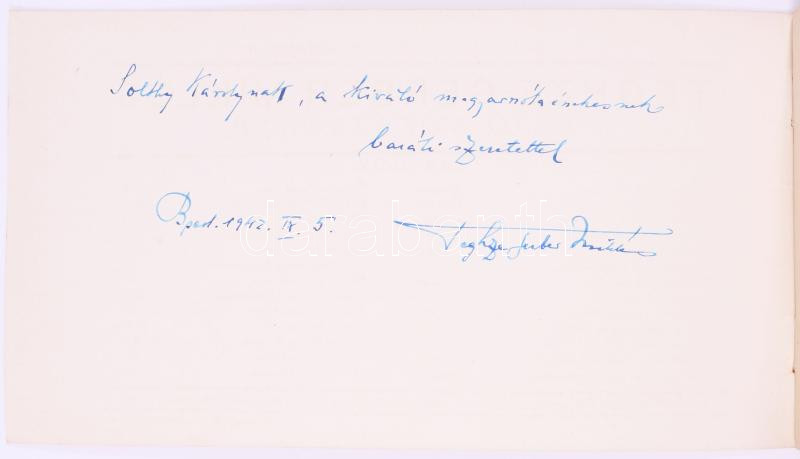 Solthy Károlynak, a kiváló magyarnótaénekesnek
baráti szeretettel
Bpest. 1942. IX. 5. Teghze-Gerber Miklós
darabanth